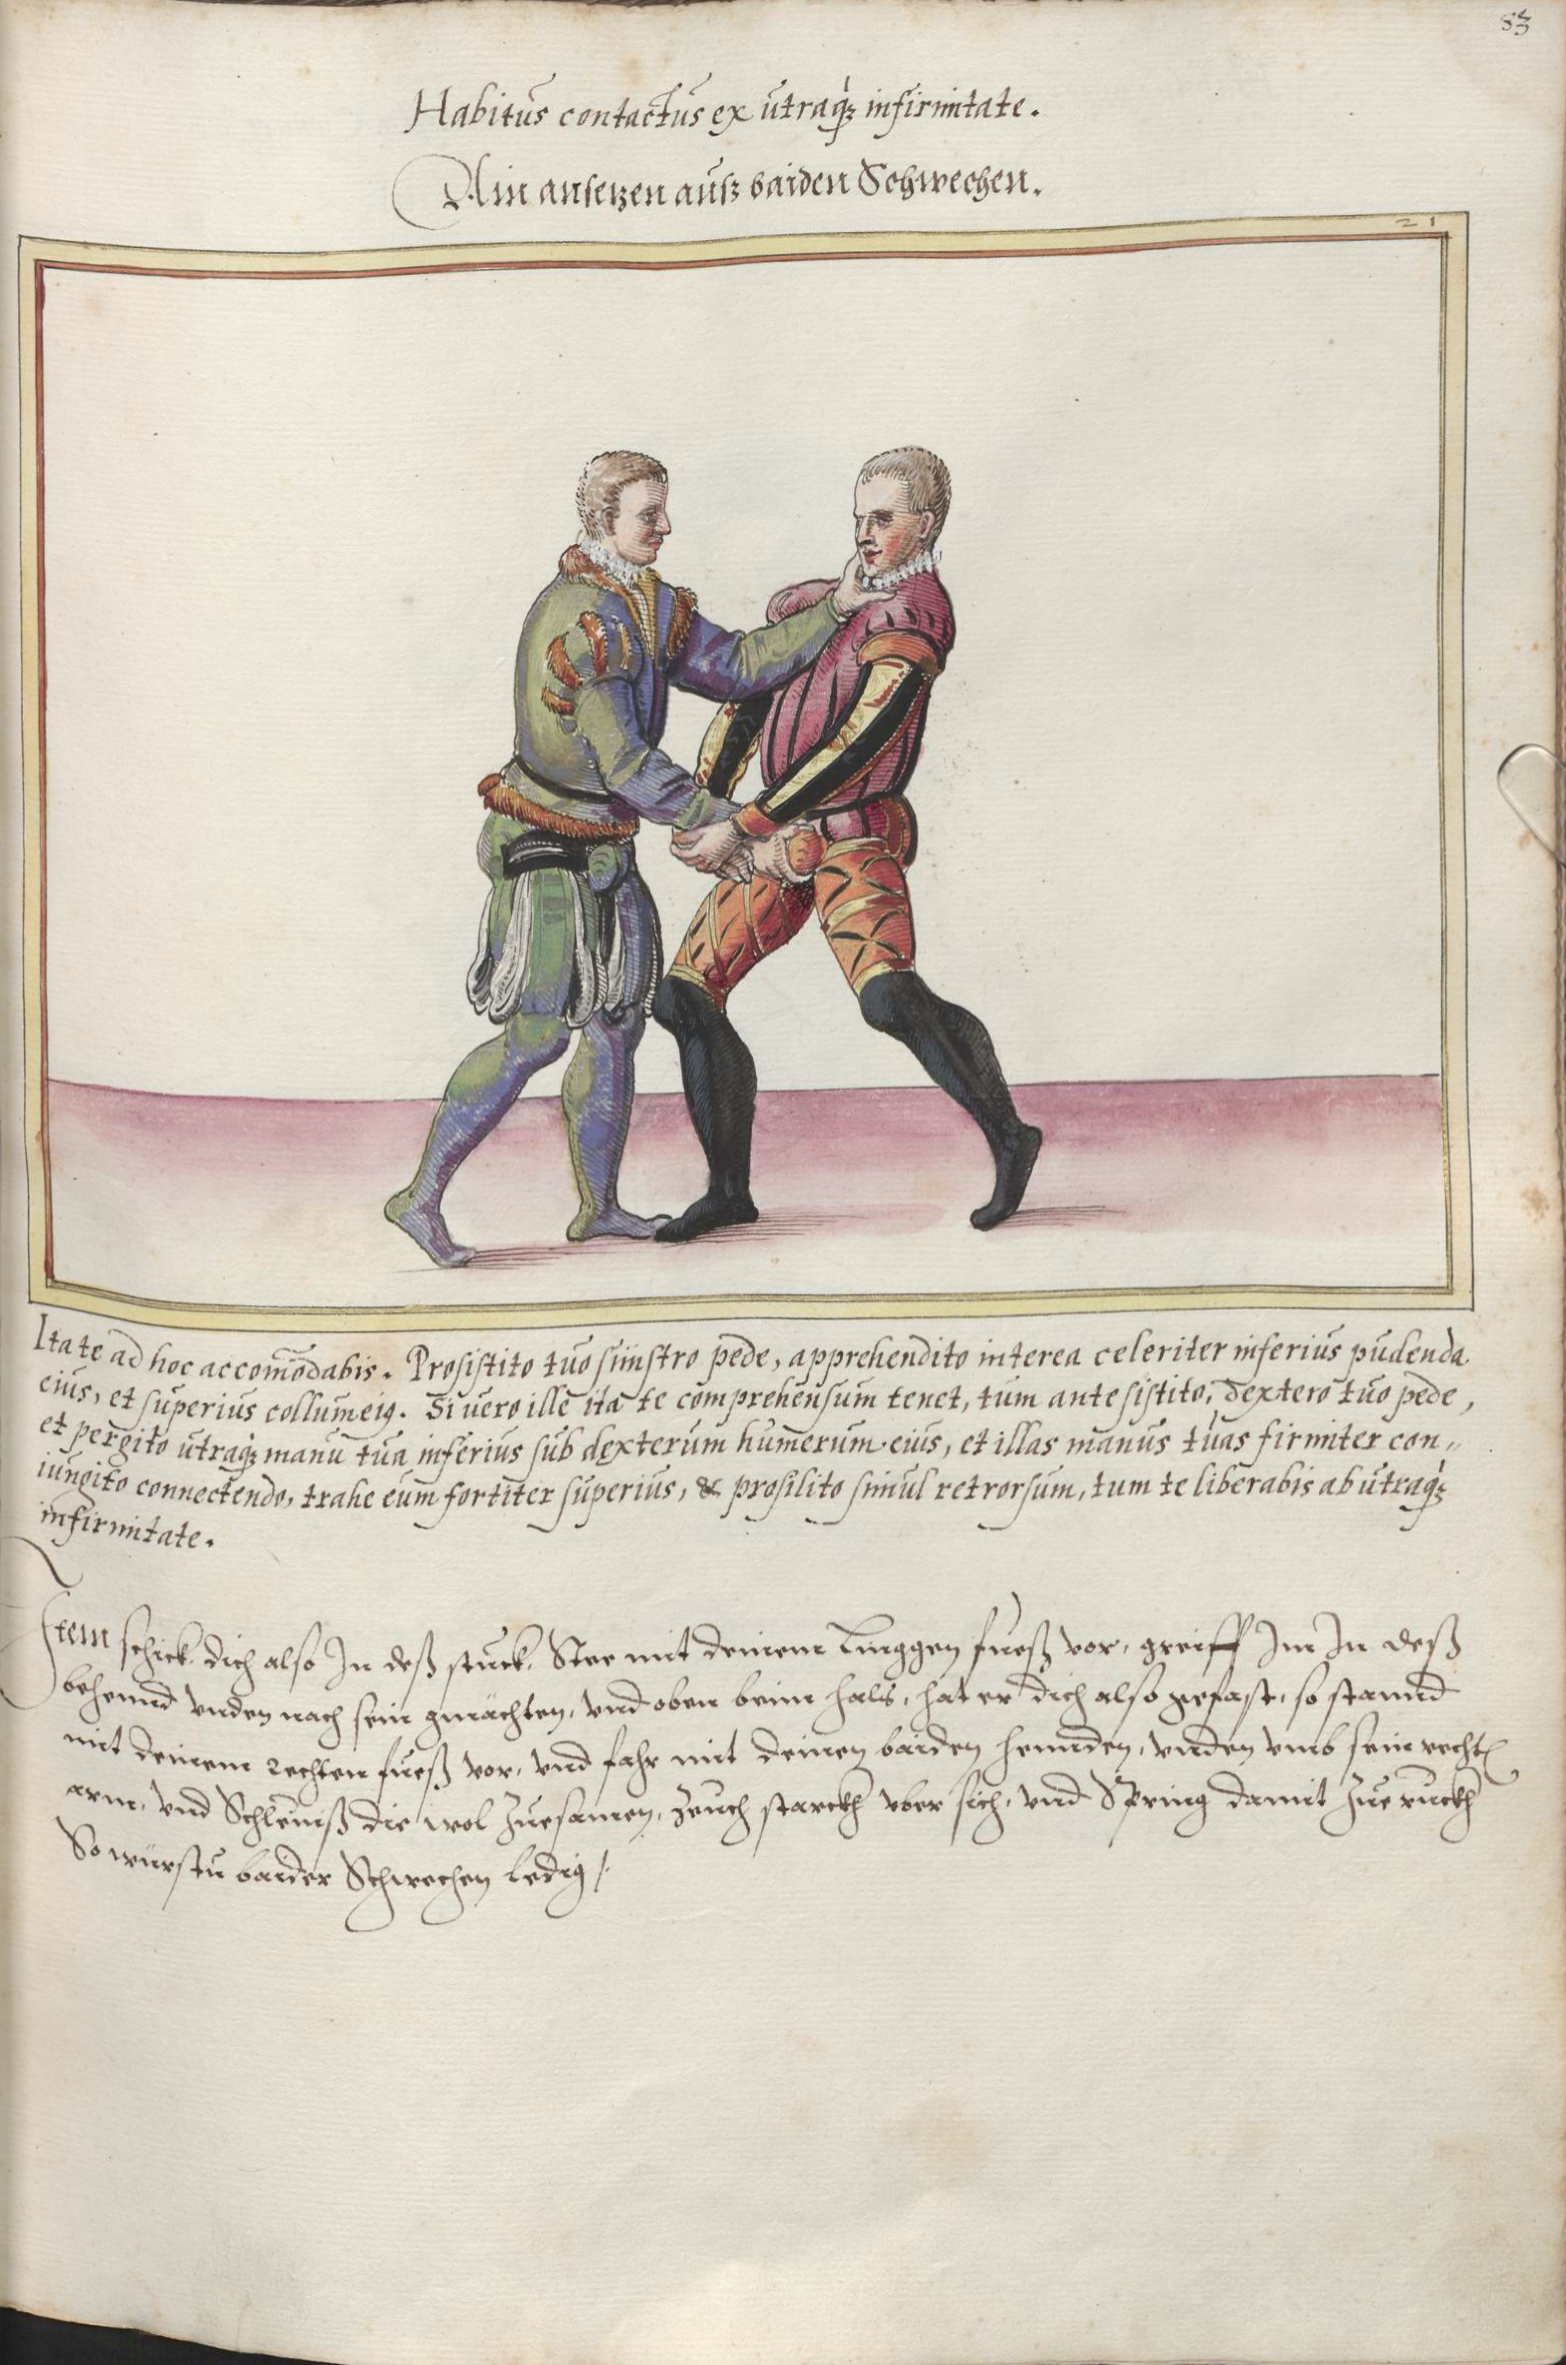 83
Habitus contactus ex utraq́ꝫ infirmitate.
Ain ansetzen ausz baiden Schwechen.
21
Ita te ad hoc accom̄odabis. Prosistito tuo sinistro pede, apprehendito interea celeriter inferius pudenda
eius, et superius collum eiꝰ. Si uero ille ita te comprehensum tenet, tum ante sistito, dextero tuo pede,
et pergito utraq́ꝫ manu tua inferius sub dexterum humerum eius, et illas manus tuas firmiter con„
iungito connectendo, trahe eum fortiter superius, & prosilito simul retrorsum, tum te liberabis ab utraq́ꝫ
infirmitate.
Item schick dich also In deß stuck, Stee mit deinem Linggen fueß vor, greiff Im In deß
behennd vnden nach sein gmächten, vnd oben beim hals, hat er dich also gefast, so stannd
mit deinem rechten fueß vor, vnd fahr mit deinen baiden hennden, vnden vmb sein rechtē
arm, vnd Schleuiß die wol Zuesamen, Zeuch starckh vber sich, vnd Spring damit Zue ruckh
So würstu baider Schwechen ledig /.